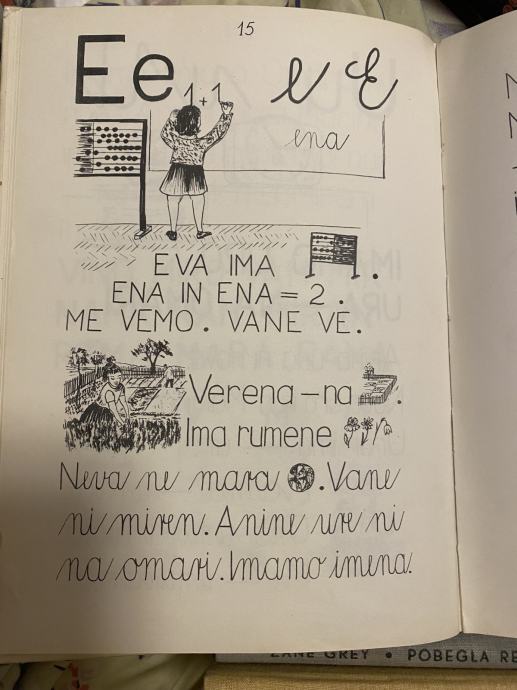 15
Ee e E
1+1
ena
EVA IMA .
ENA IN ENA = 2 .
ME VEMO . VANE VE .
Verena – na .
Ima rumene
Neva ne mara . Vane
ni miren. Anine ure ni
na omari. Imamo imena.
ZANE GREY • POBEGLA RE